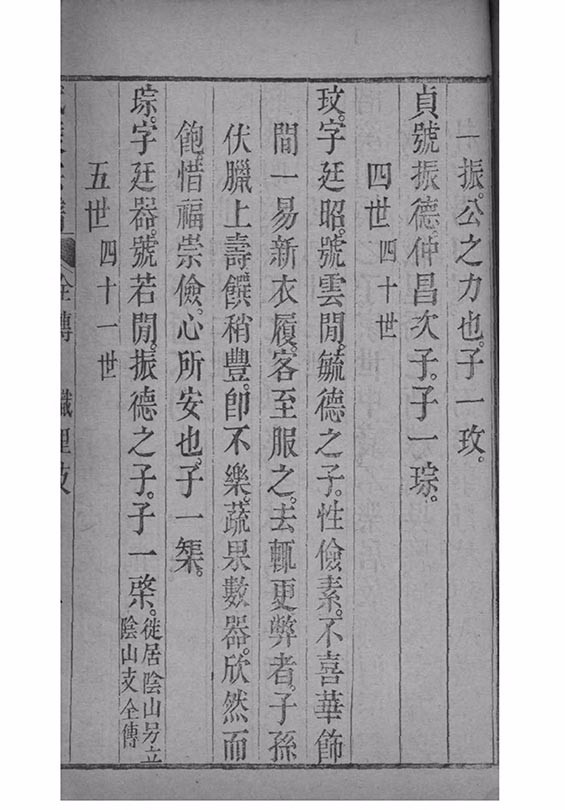 一振公之力也子一玫
貞號振德仲昌次子子一琮
四世四十世
玫字廷昭號雲閒毓德之子性儉素不喜華飾
間一易新衣履客至服之去輒更弊者子孫
伏臘上壽饌稍豐卽不樂蔬果數器欣然而
飽惜福崇儉心所安也子一榘
琮字廷器號若閒振德之子子一棨徙居陰山另立
陰山支全傳
五世四十一世
全傳